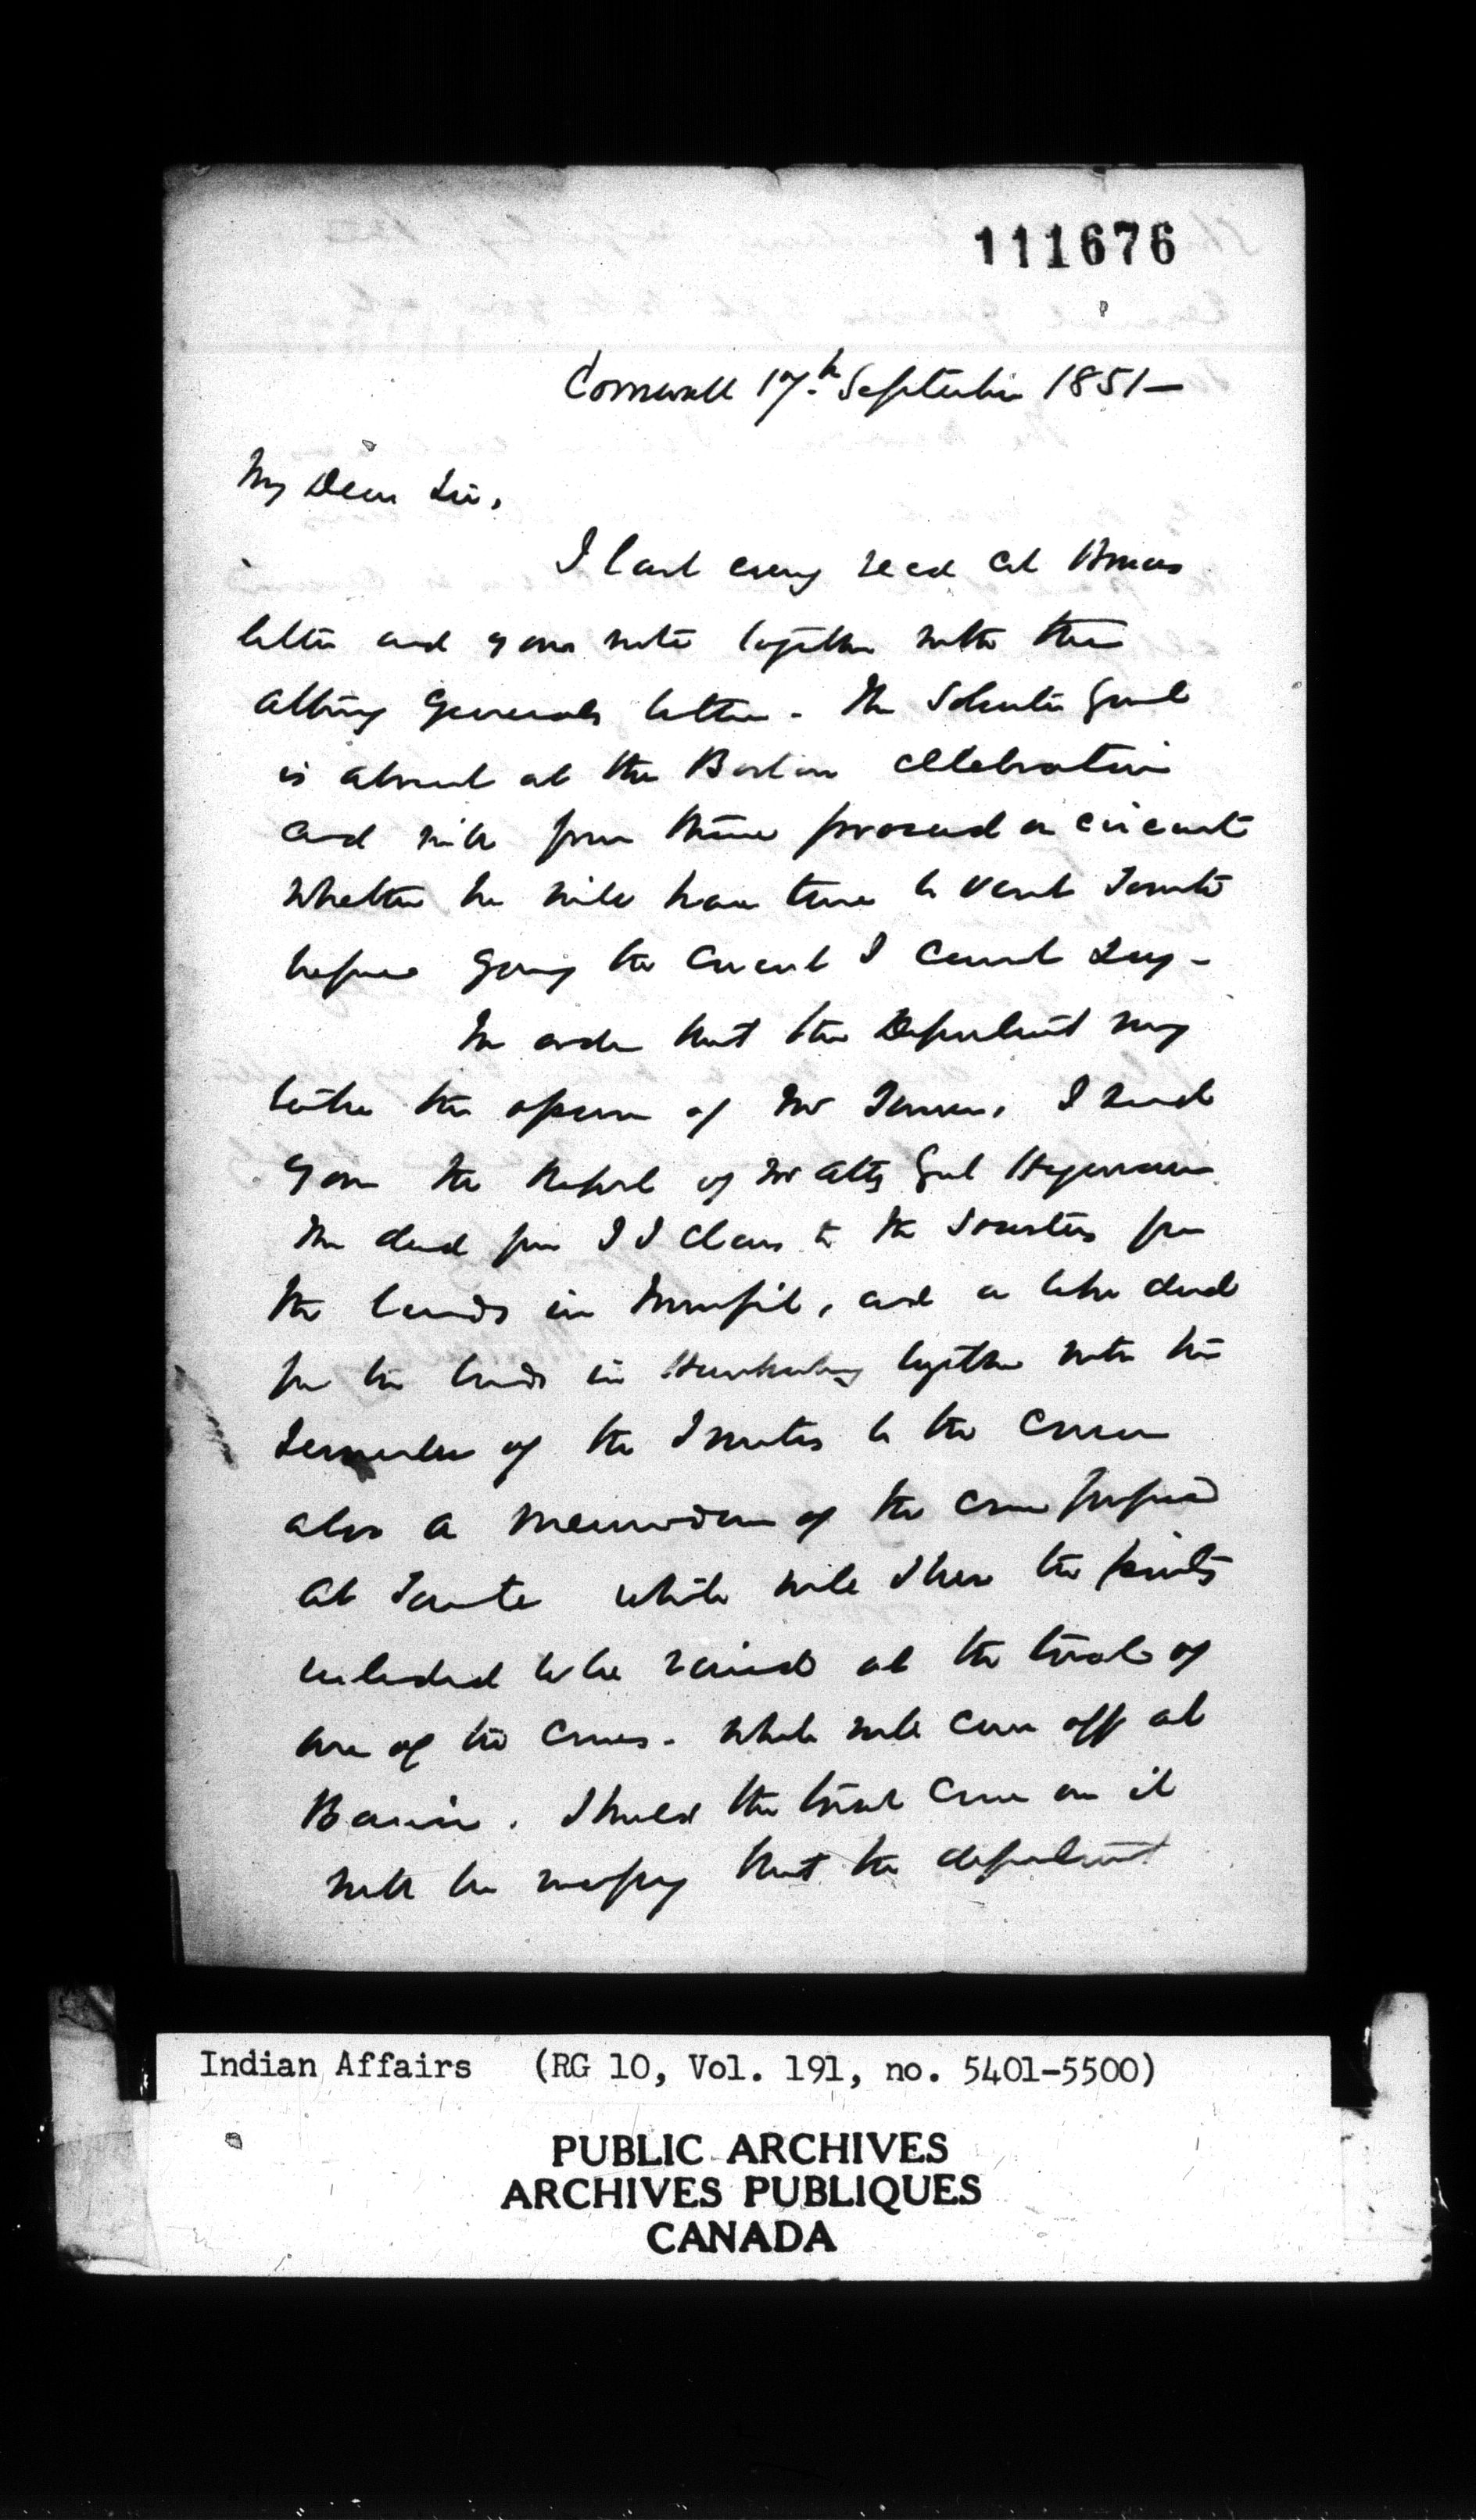 111676
Cornwall 17th September 1851—
My Dear Sir,
I last eveng recd Col Bruces
letter and your note together with the
Attorney Generals letter - The Solicitor Genl
is absent at the Boston Celebration
and will from thence proceed on circuit
Whether he will have time to visit Toronto
before going the Circuit I cannot say -
In order that the Department may
take the opinion of Mr I send
you the Report of Mr Atty Genl
The deed from J J Claus to the Trustees for
the lands in and a like deed
for the lands in together with the
Surrender of the Trustees to the Crown
also a Memorandum of the Case prepared
at Toronto which will shew the points
intended to be raised at the trial of
one of the Cases - which will come off at
Barrie. Should the trial come on it
will be necessary that the department
Indian Affairs (RG 10, Vol. 191, no. 5401-5500)
PUBLIC ARCHIVES
ARCHIVES PUBLIQUES
CANADA